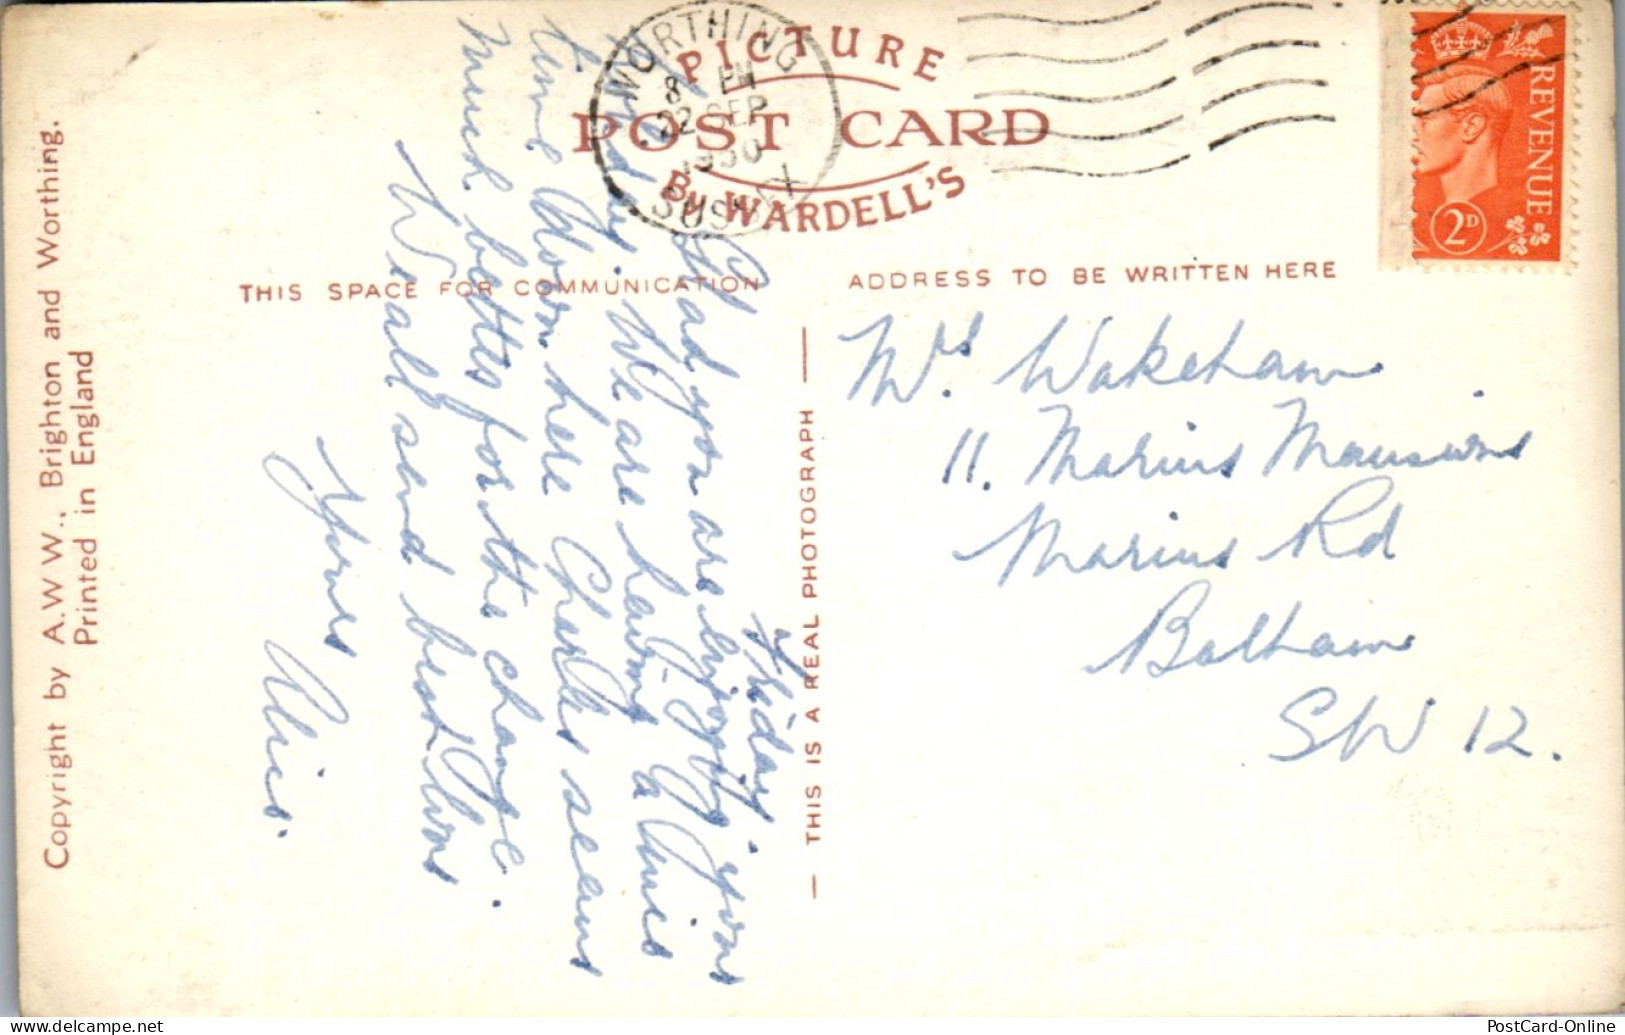 PICTURE
POST CARD
By WARDELL'S
WORTHING
8 PM
22 SEP
1950
SUSSEX
REVENUE
2D
THIS SPACE FOR COMMUNICATION
ADDRESS TO BE WRITTEN HERE
Friday.
Glad you are enjoying yours
holiday. We are having a nice
time down here Charles seems
much better for the change.
We all send best love
Yours
Alice.
THIS IS A REAL PHOTOGRAPH
Mrs Wakeham
11. Marius Mansions
Marius Rd
Balham
SW 12.
Copyright by A.W.W., Brighton and Worthing.
Printed in England
PostCard-Online